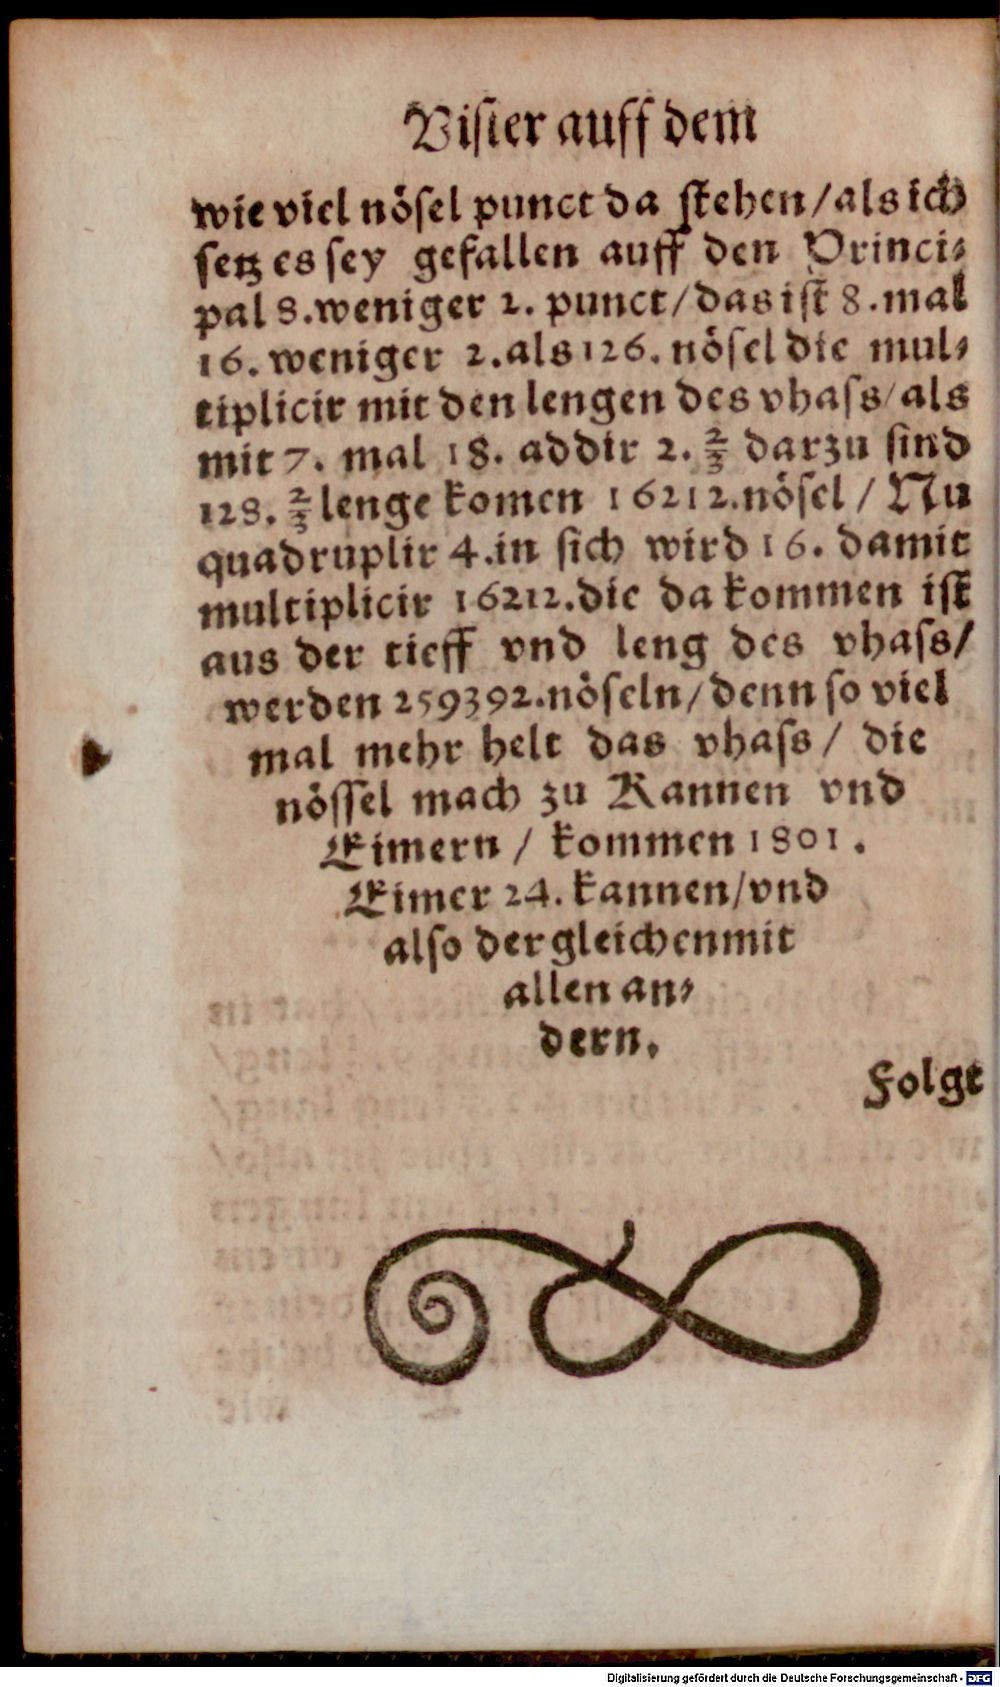 Visier auff dem
wie viel nösel punct da stehen/als ich
setz es sey gefallen auff den Princi-
pal 8.weniger 2. punct/das ist 8.mal
16. weniger 2.als 126. nösel die mul-
tiplicir mit den lengen des vhass/als
mit 7. mal 18. addir 2. 2/3 darzu sind
128. 2/3 lenge komen 16212.nösel / Nu
quadruplir 4.in sich wird 16. damit
multiplicir 16212.die da kommen ist
aus der tieff vnd leng des vhass/
werden 259392.nöseln/denn so viel
mal mehr helt das vhass/ die
nössel mach zu Kannen vnd
Eimern / kommen 1801.
Eimer 24. kannen/vnd
also dergleichenmit
allen an-
dern.
Folgt
Digitalisierung gefördert durch die Deutsche Forschungsgemeinschaft - DFG